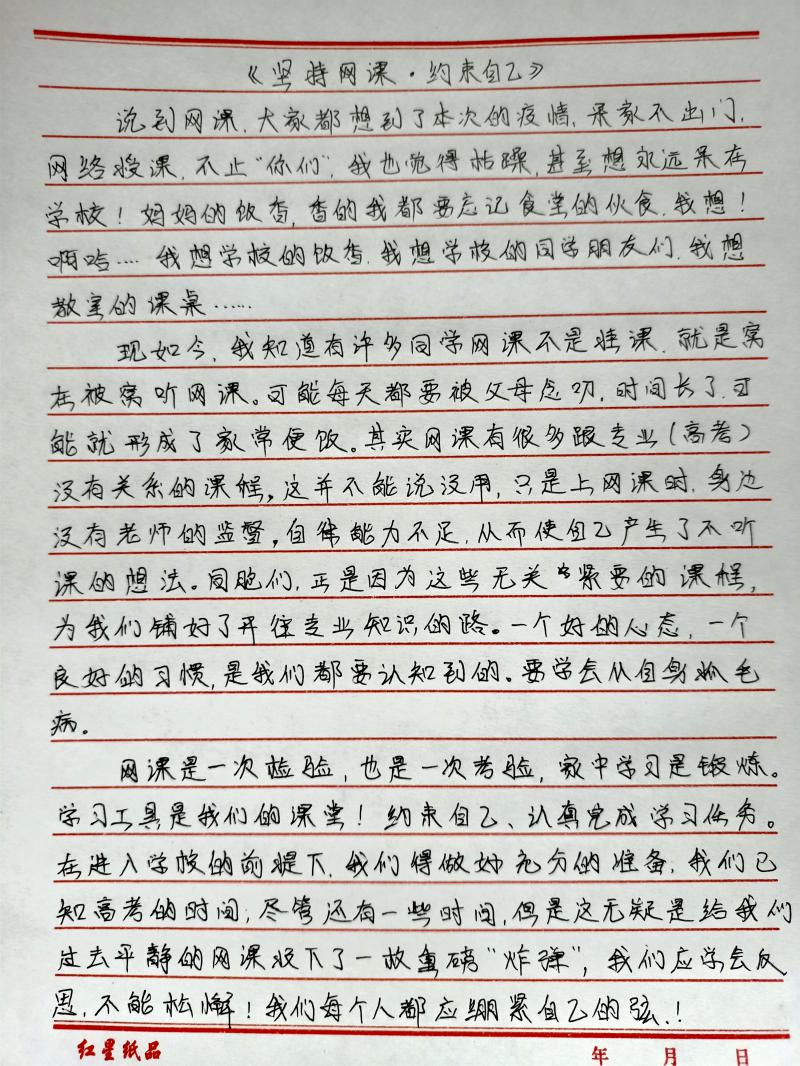 《坚持网课·约束自己》
说到网课,大家都想到了本次的疫情,呆家不出门,
网络授课,不止“你们”,我也觉得枯躁,甚至想永远呆在
学校!妈妈的饭香,香的我都要忘记食堂的伙食,我想!
啊哈……我想学校的饭香,我想学校的同学朋友们,我想
教室的课桌……
现如今,我知道有许多同学网课不是挂课,就是窝
在被窝听网课。可能每天都要被父母念叨,时间长了,可
能就形成了家常便饭。其实网课有很多跟专业(高考)
没有关系的课程。这并不能说没用,只是上网课时,身边
没有老师的监督,自律能力不足,从而使自己产生了不听
课的想法。同胞们,正是因为这些无关紧要的课程,
为我们铺好了开往专业知识的路。一个好的心态,一个
良好的习惯,是我们都要认知到的。要学会从自身抓毛
病。
网课是一次检验,也是一次考验,家中学习是锻炼。
学习工具是我们的课堂!约束自己、认真完成学习任务。
在进入学校的前提下,我们得做好充分的准备,我们已
知高考的时间;尽管还有一些时间,但是这无疑是给我们
过去平静的网课投下了一枚重磅“炸弹”,我们应学会反
思,不能松懈!我们每个人都应绷紧自己的弦!
红星纸品 年 月 日